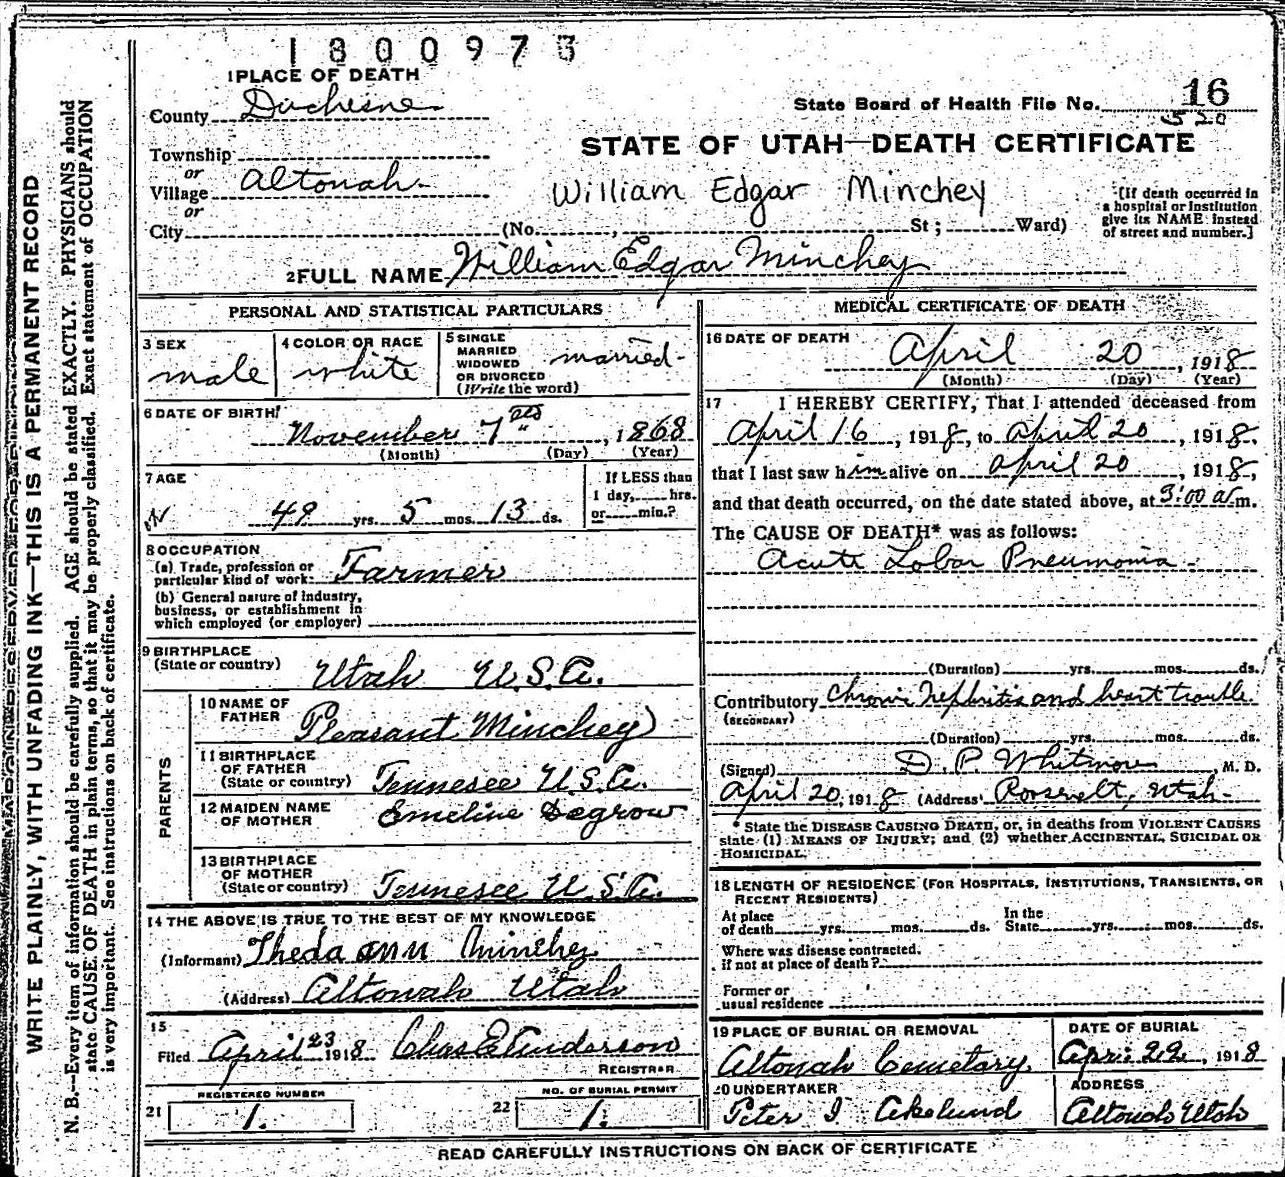 1800973
1 PLACE OF DEATH
County Duchesne
State Board of Health File No. 16
520
STATE OF UTAH—DEATH CERTIFICATE
Township
or
Village Altonah
or
City
William Edgar Minchey
(No. , St; Ward)
(If death occurred in
a hospital or institution
give its NAME instead
of street and number.]
2 FULL NAME William Edgar Minchey
PERSONAL AND STATISTICAL PARTICULARS
3 SEX
male
4 COLOR OR RACE
white
5 SINGLE
MARRIED
WIDOWED
OR DIVORCED
(Write the word)
married
6 DATE OF BIRTH
November 7 , 1868
(Month) (Day) (Year)
7 AGE
49 yrs. 5 mos. 13 ds.
If LESS than
1 day, hrs.
or min.?
8 OCCUPATION
(a) Trade, profession or
particular kind of work Farmer
(b) General nature of industry,
business, or establishment in
which employed (or employer)
9 BIRTHPLACE
(State or country)
Utah U.S.A.
PARENTS
10 NAME OF
FATHER
Pleasant Minchey
11 BIRTHPLACE
OF FATHER
(State or country) Tennesee U.S.A.
12 MAIDEN NAME
OF MOTHER
Emeline Degrow
13 BIRTHPLACE
OF MOTHER
(State or country) Tennesee U.S.A.
14 THE ABOVE IS TRUE TO THE BEST OF MY KNOWLEDGE
(Informant) Theda Ann Minchey
(Address) Altonah Utah
15
Filed April 23 1918 Chas E Anderson
REGISTRAR
REGISTERED NUMBER
21 1.
NO. OF BURIAL PERMIT
22 1.
MEDICAL CERTIFICATE OF DEATH
16 DATE OF DEATH
April 20 , 1918
(Month) (Day) (Year)
17 I HEREBY CERTIFY, That I attended deceased from
April 16, 1918, to April 20, 1918.
that I last saw him alive on April 20, 1918,
and that death occurred, on the date stated above, at 3:00 a.m.
The CAUSE OF DEATH* was as follows:
Acute Lobar Pneumonia
(Duration) yrs. mos. ds.
Contributory Chronic Nephritis and heart trouble
(SECONDARY)
(Duration) yrs. mos. ds.
(Signed) D. P. Whitmore, M. D.
April 20, 1918 (Address) Roosevelt, Utah
* State the DISEASE CAUSING DEATH, or, in deaths from VIOLENT CAUSES
state (1) MEANS OF INJURY; and (2) whether ACCIDENTAL, SUICIDAL OR
HOMICIDAL.
18 LENGTH OF RESIDENCE (FOR HOSPITALS, INSTITUTIONS, TRANSIENTS, OR
RECENT RESIDENTS)
At place
of death yrs. mos. ds.
In the
State yrs. mos. ds.
Where was disease contracted.
if not at place of death?
Former or
usual residence
19 PLACE OF BURIAL OR REMOVAL
Altonah Cemetary.
DATE OF BURIAL
Apr. 22, 1918
20 UNDERTAKER
Peter
ADDRESS
Altonah Utah
READ CAREFULLY INSTRUCTIONS ON BACK OF CERTIFICATE
WRITE PLAINLY, WITH UNFADING INK—THIS IS A PERMANENT RECORD
N. B.—Every item of information should be carefully supplied. AGE should be stated EXACTLY. PHYSICIANS should
state CAUSE OF DEATH in plain terms, so that it may be properly classified. Exact statement of OCCUPATION
is very important. See instructions on back of certificate.